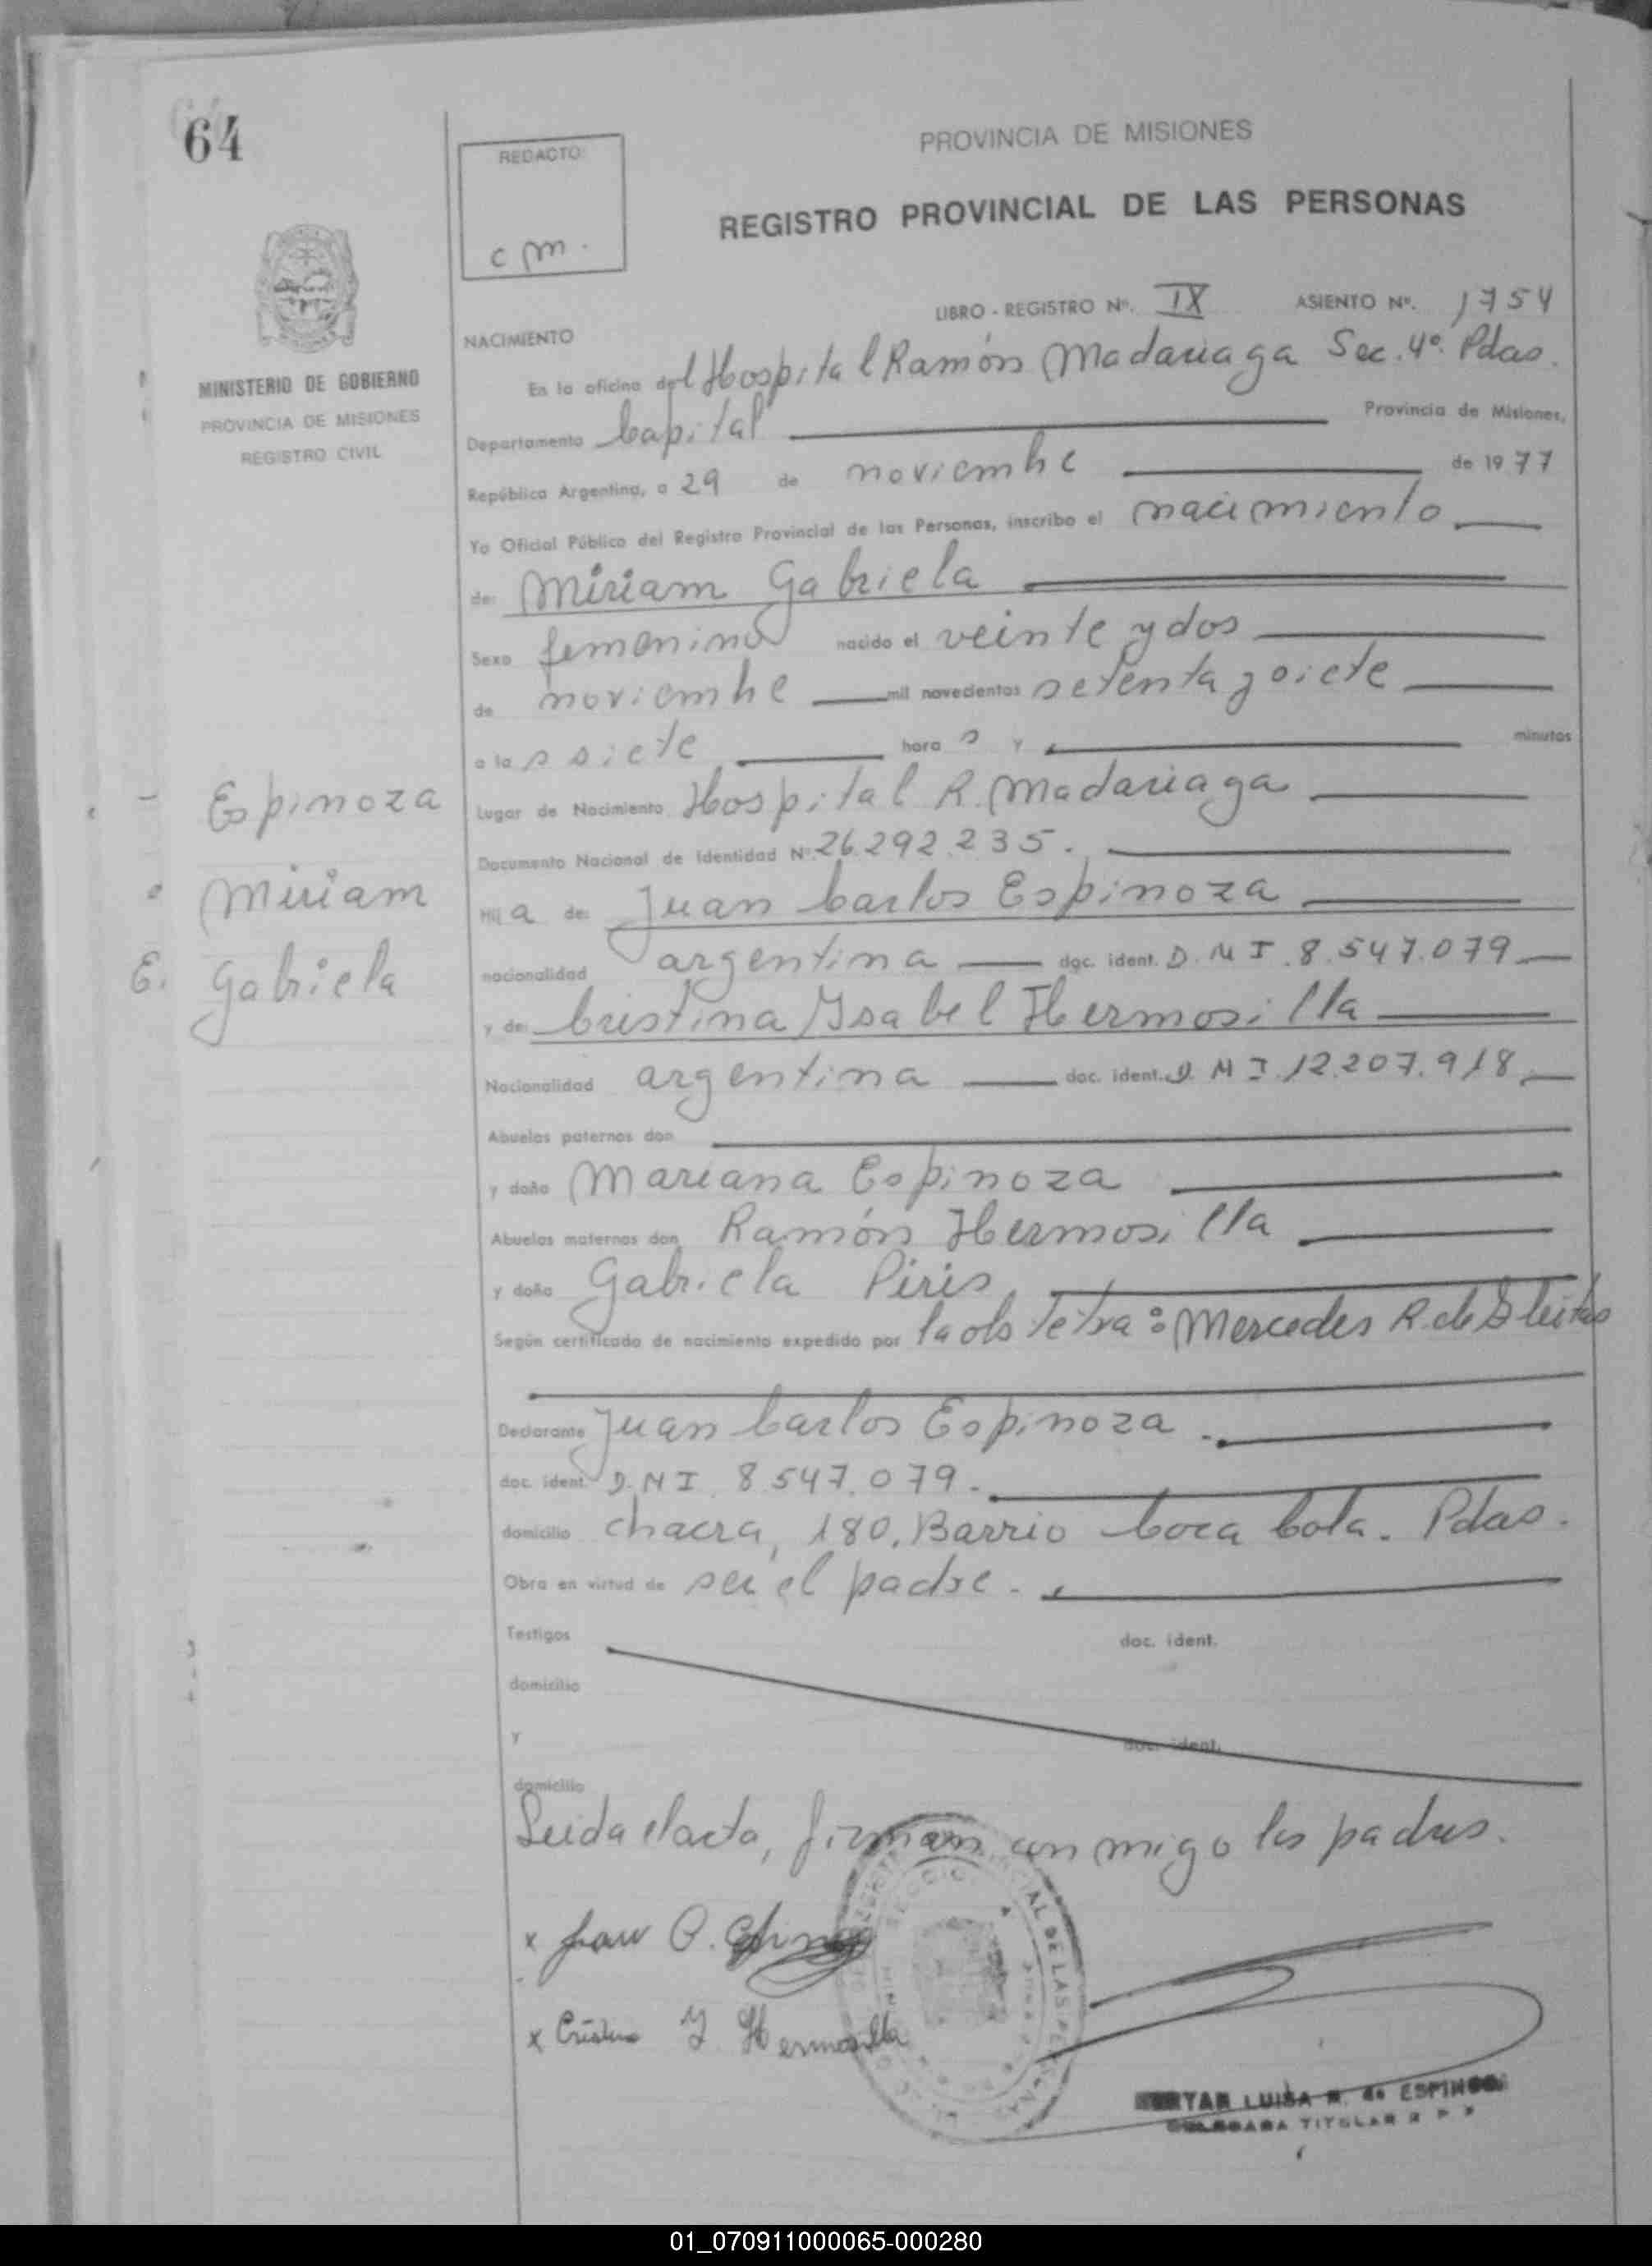 64
PROVINCIA DE MISIONES
REDACTO:
cm.
REGISTRO PROVINCIAL DE LAS PERSONAS
LIBRO - REGISTRO Nº. IX ASIENTO Nº. 1754
MINISTERIO DE GOBIERNO
PROVINCIA DE MISIONES
REGISTRO CIVIL
NACIMIENTO
En la oficina del Hospital Ramón Madariaga Sec. 4º. Pdas.
Departamento Capital Provincia de Misiones,
República Argentina, a 29 de noviembre de 1977
Yo Oficial Público del Registro Provincial de las Personas, inscribo el nacimiento
de: Miriam Gabriela
Sexo femenino nacido el veinte y dos
de noviembre mil novecientos setenta y siete
a las siete horas y minutos
Espinoza
Miriam
E. Gabriela
Lugar de Nacimiento Hospital R. Madariaga
Documento Nacional de Identidad Nº 26.292.235.
Hija de: Juan Carlos Espinoza
nacionalidad argentina doc. ident. D.N.I. 8.547.079
y de: Cristina Ysabel Hermosilla
Nacionalidad argentina doc. ident. D.N.I. 12.207.918
Abuelos paternos don
y doña Mariana Espinoza
Abuelos maternos don Ramón Hermosilla
y doña Gabriela Piris
Según certificado de nacimiento expedido por la obstetra: Mercedes R. de Gleitas
Declarante Juan Carlos Espinoza.
doc. ident. D.N.I. 8.547.079.
domicilio chacra, 180, Barrio Coca Cola. Pdas.
Obra en virtud de ser el padre.
Testigos doc. ident.
domicilio
y doc. ident.
domicilio
Leida el acta, firman conmigo los padres.
x Juan C. Espinoza
x Cristina Y Hermosilla
LUISA R. de ESPINOSA
DELEGADA TITULAR R P P
01_070911000065-000280